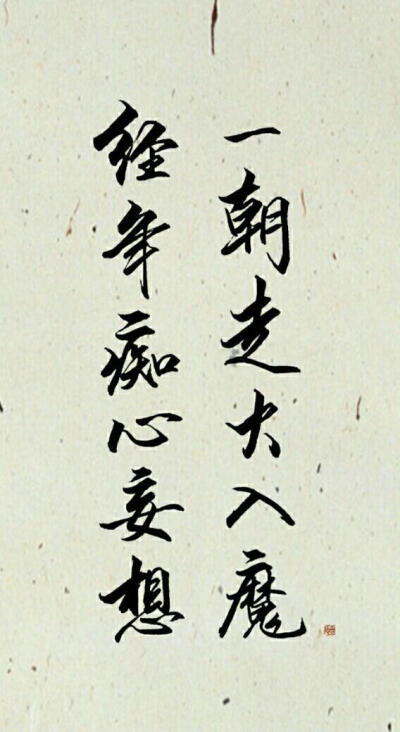 一朝走火入魔
经年痴心妄想